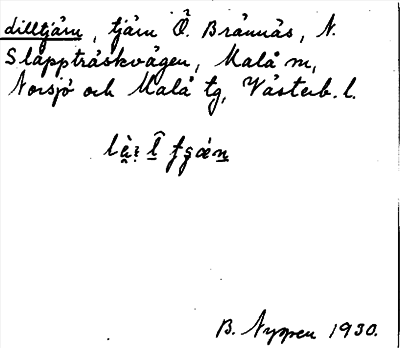 dilltjärn, tjärn Ö. Brännäs, N.
Slåppträskvägen, Malå m,
Norsjö och Malå tg, Västerb. l.
B. Nyppen 1930.